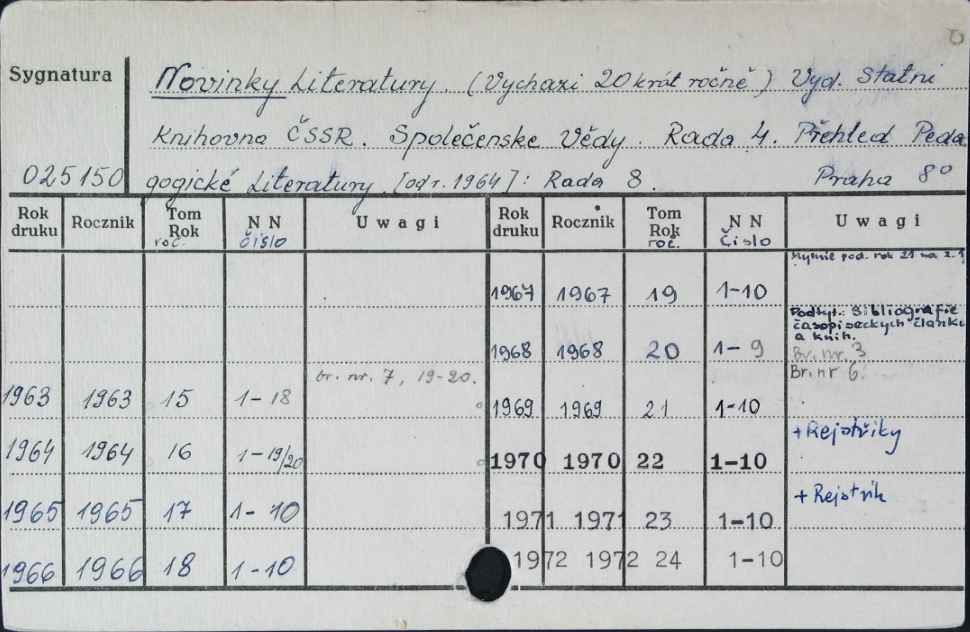 Sygnatura
Novinky Literatury. (Vychazi 20 krát ročně) Vyd. Statni
Knihovna ČSSR. Společenske Vědy. Rada 4. Přehled Peda
025150 gogické Literatury. [od r. 1964]: Rada 8. Praha 8°
Rok druku Rocznik Tom Rok roč. N N čislo Uwagi Rok druku Rocznik Tom Rok roč. N N Čislo Uwagi
rok 21 na z. 1
1967 1967 19 1-10
Podtyt.: Bibliografie
časopiseckych članku
a knih.
1968 1968 20 1-9 Br. nr. 3
br. nr. 7, 19-20. Br. nr 6.
1963 1963 15 1-18 1969 1969 21 1-10
+ Rejstřiky
1964 1964 16 1-19/20 1970 1970 22 1-10
+ Rejstřik
1965 1965 17 1-10 1971 1971 23 1-10
1966 1966 18 1-10 1972 1972 24 1-10